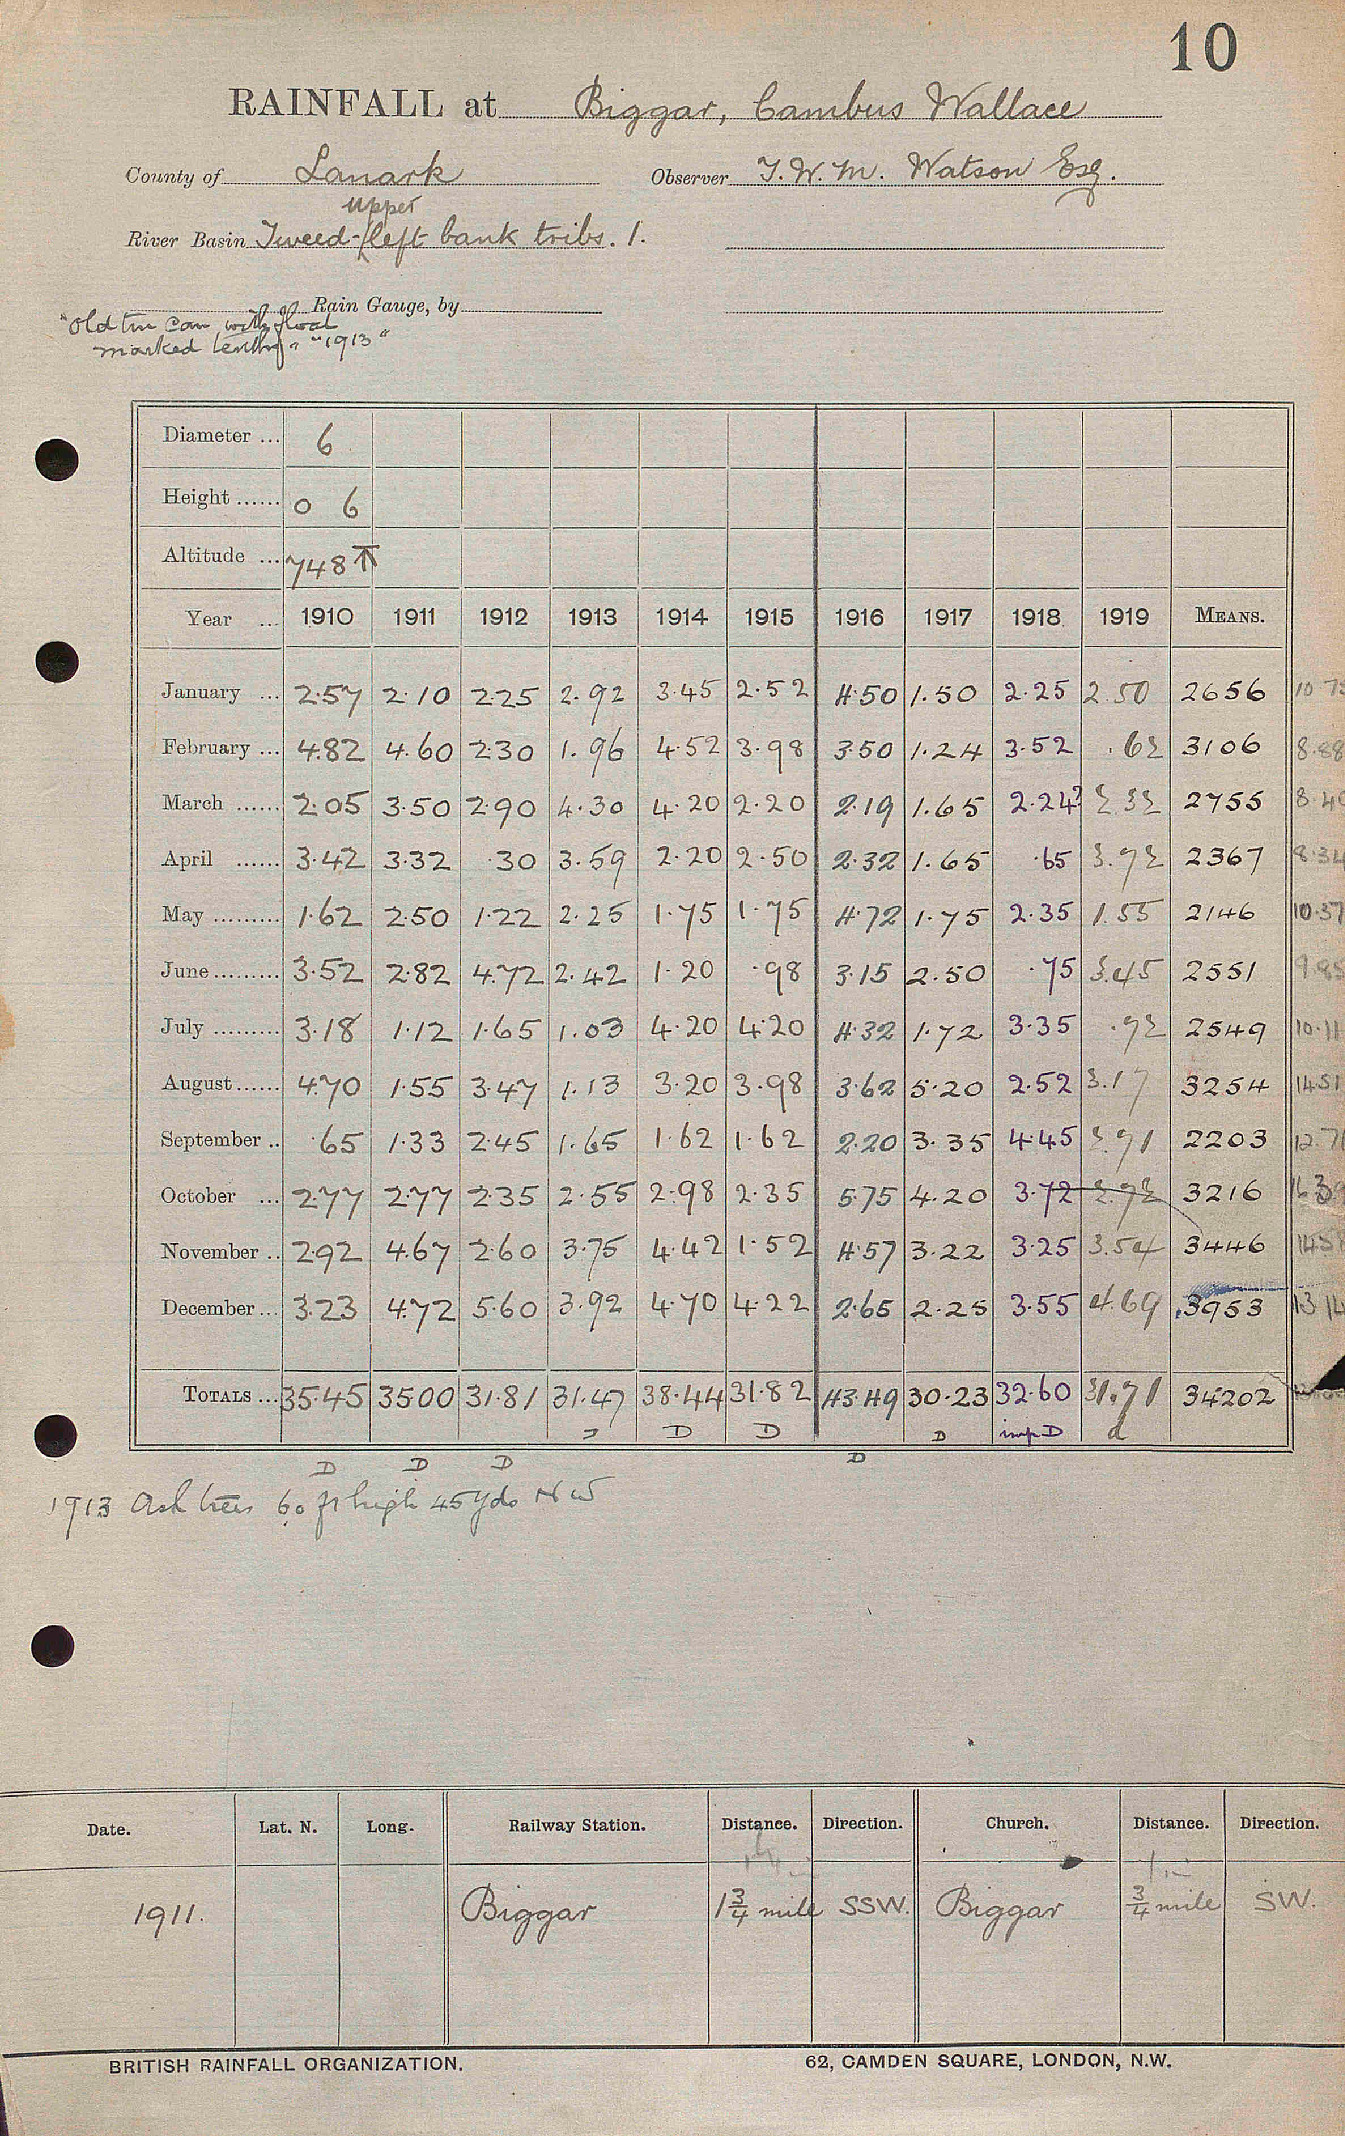 10
RAINFALL at Biggar, Cambus Wallace
County of Lanark Observer T. W. M. Watson Esq.
Upper
River Basin Tweed - left bank tribs. 1.
Rain Gauge, by
"Old tin can with float
marked tenths" "1913"
Diameter ... 6
Height ...... 0 6
Altitude ... 748 ⊼
Year ... 1910 1911 1912 1913 1914 1915 1916 1917 1918 1919 MEANS.
January ... 2.57 2.10 2.25 2.92 3.45 2.52 4.50 1.50 2.25 2.50 2656
February ... 4.82 4.60 2.30 1.96 4.52 3.98 3.50 1.24 3.52 .62 3106 8.88
March ...... 2.05 3.50 2.90 4.30 4.20 2.20 2.19 1.65 2.24? 2.32 2755
April ...... 3.42 3.32 .30 3.59 2.20 2.50 2.32 1.65 .65 3.72 2367 8.34
May ......... 1.62 2.50 1.22 2.25 1.75 1.75 4.72 1.75 2.35 1.55 2146 10.37
June ......... 3.52 2.82 4.72 2.42 1.20 .98 3.15 2.50 .75 3.45 2551 9.85
July ......... 3.18 1.12 1.65 1.03 4.20 4.20 4.32 1.72 3.35 .72 2549 10.11
August ...... 4.70 1.55 3.47 1.13 3.20 3.98 3.62 5.20 2.52 3.17 3254 14.51
September .. .65 1.33 2.45 1.65 1.62 1.62 2.20 3.35 4.45 2.71 2203 12.71
October ... 2.77 2.77 2.35 2.55 2.98 2.35 5.75 4.20 3.72 2.72 3216 16.39
November .. 2.92 4.67 2.60 3.75 4.42 1.52 4.57 3.22 3.25 3.54 3446 14.58
December ... 3.23 4.72 5.60 3.92 4.70 4.22 2.65 2.25 3.55 4.69 3953 13.14
TOTALS ... 35.45 35.00 31.81 31.47 38.44 31.82 43.49 30.23 32.60 31.71 34202
D D D D imp D d
D D D D
1913 Ash trees 60 ft high 45 yds NW
Date. Lat. N. Long. Railway Station. Distance. Direction. Church. Distance. Direction.
1911. Biggar 1¾ mile SSW. Biggar ¾ mile SW.
BRITISH RAINFALL ORGANIZATION. 62, CAMDEN SQUARE, LONDON, N.W.